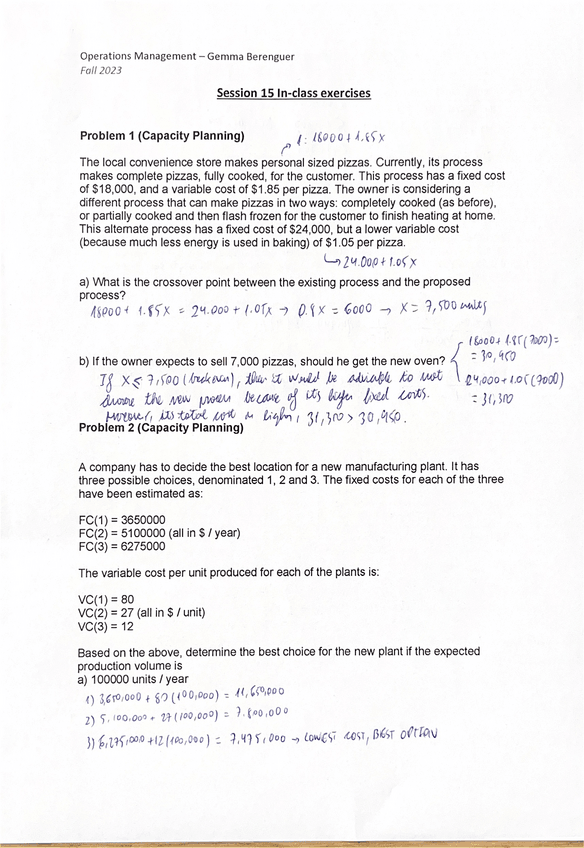 Operations Management – Gemma Berenguer
Fall 2023
Session 15 In-class exercises
Problem 1 (Capacity Planning)
1: 18000 + 1.85x
The local convenience store makes personal sized pizzas. Currently, its process
makes complete pizzas, fully cooked, for the customer. This process has a fixed cost
of $18,000, and a variable cost of $1.85 per pizza. The owner is considering a
different process that can make pizzas in two ways: completely cooked (as before),
or partially cooked and then flash frozen for the customer to finish heating at home.
This alternate process has a fixed cost of $24,000, but a lower variable cost
(because much less energy is used in baking) of $1.05 per pizza.
24.000 + 1.05x
a) What is the crossover point between the existing process and the proposed
process?
18000 + 1.85x = 24.000 + 1.05x → 0.8x = 6000 → x = 7,500 units
b) If the owner expects to sell 7,000 pizzas, should he get the new oven?
18000 + 1.85(7000) =
= 30,950
24,000 + 1.05(7000)
= 31,350
If x < 7,500 (breakeven), then it would be advisable to not
choose the new process because of its higher fixed costs.
Moreover, its total cost is higher, 31,350 > 30,950.
Problem 2 (Capacity Planning)
A company has to decide the best location for a new manufacturing plant. It has
three possible choices, denominated 1, 2 and 3. The fixed costs for each of the three
have been estimated as:
FC(1) = 3650000
FC(2) = 5100000 (all in $ / year)
FC(3) = 6275000
The variable cost per unit produced for each of the plants is:
VC(1) = 80
VC(2) = 27 (all in $ / unit)
VC(3) = 12
Based on the above, determine the best choice for the new plant if the expected
production volume is
a) 100000 units / year
1) 3,650,000 + 80 (100,000) = 11,650,000
2) 5.100,000 + 27 (100,000) = 7.800,000
3) 6,275,000 + 12 (100,000) = 7,475,000 → LOWEST COST, BEST OPTION